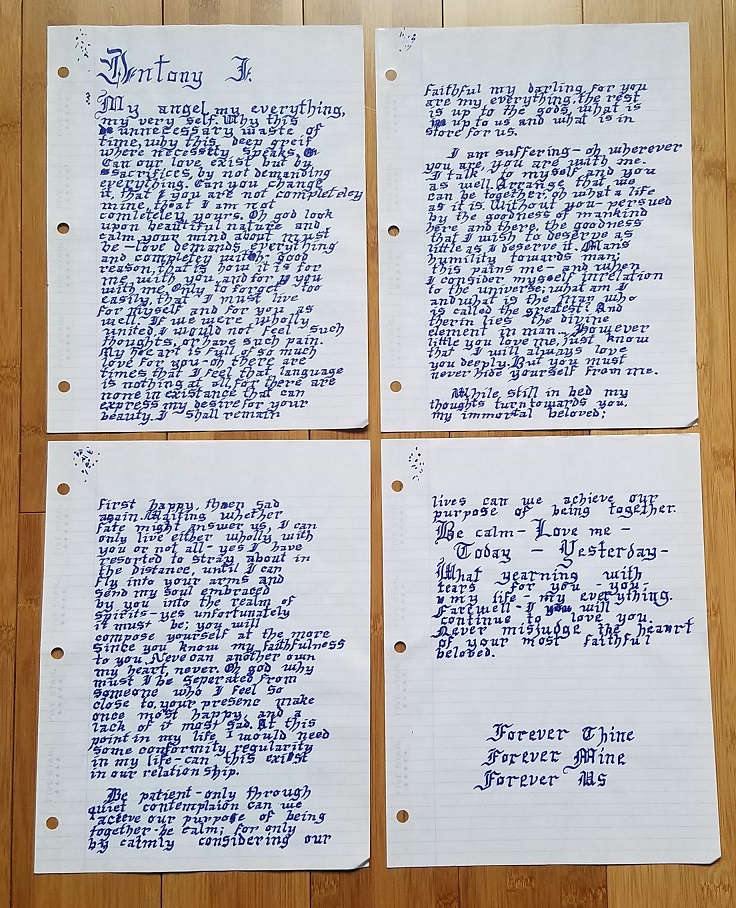 Antony J.
My angel, my everything,
my very self. Why this
unnecessary waste of
time, why this deep greif
where necessity speaks,
Can our love exist but by
sacrifices, by not demanding
everything. Can you change
it, that you are not completeley
mine, that I am not
comleteley yours. Oh god look
upon beautiful nature and
calm your mind about must
be - love demands everything
and completey with good
reason, that is how it is for
me with you, and for you
with me. Only to forget too
easily, that I must live
for myself and for you as
well. If we were wholly
united I would not feel such
thoughts, or have such pain.
My heart is full of so much
love for you - oh there are
times that I feel that language
is nothing at all, for there are
none in existance that can
express my desire for your
beauty. I shall remain
faithful my darling for you
are my everything, the rest
is up to the gods, what is
up to us and what is in
store for us.
I am suffering - oh wherever
you are, you are with me.
I talk to myself and you
as well. Arrange that we
can be together, oh what a life
as it is. Without you - persued
by the goodness of mankind
here and there, the goodness
that I wish to deserve as
little as I deserve it. Mans
humility towards man;
this pains me - and when
I consider myself inrelation
to the universe; what am I
and what is the man who
is called the greatest? And
therin lies the divine
element in man. However
little you love me, just know
that I will always love
you deeply. But you must
never hide yourself from me.
While still in bed my
thoughts turn towards you,
my immortal beloved;
first happy, then sad
again. Waiting whether
fate might answer us, I can
only live either wholly with
you or not all - yes I have
resorted to stray about in
the distance, until I can
fly into your arms and
send my soul embraced
by you into the realm of
spirits - yes unfortunately
it must be; you will
compose yourself at the more
since you know my faithfulness
to you. Neve can another own
my heart, never. Oh god why
must I be seperated from
someone who I feel so
close to, your presenc make
once most happy and a
lack of it most sad. At this
point in my life I would need
some conformity regularity
in my life - can this exist
in our relation ship.
Be patient - only through
quiet contemplaion can we
acieve our purpose of being
together - be calm; for only
by calmly considering our
lives can we achieve our
purpose of being together.
Be calm - Love me -
Today - Yesterday -
What yearning with
tears for you - you -
my life - my everything.
Farewell - I will
continue to love you.
Never misjudge the heart
of your most faithful
beloved.
Forever Thine
Forever Mine
Forever Us